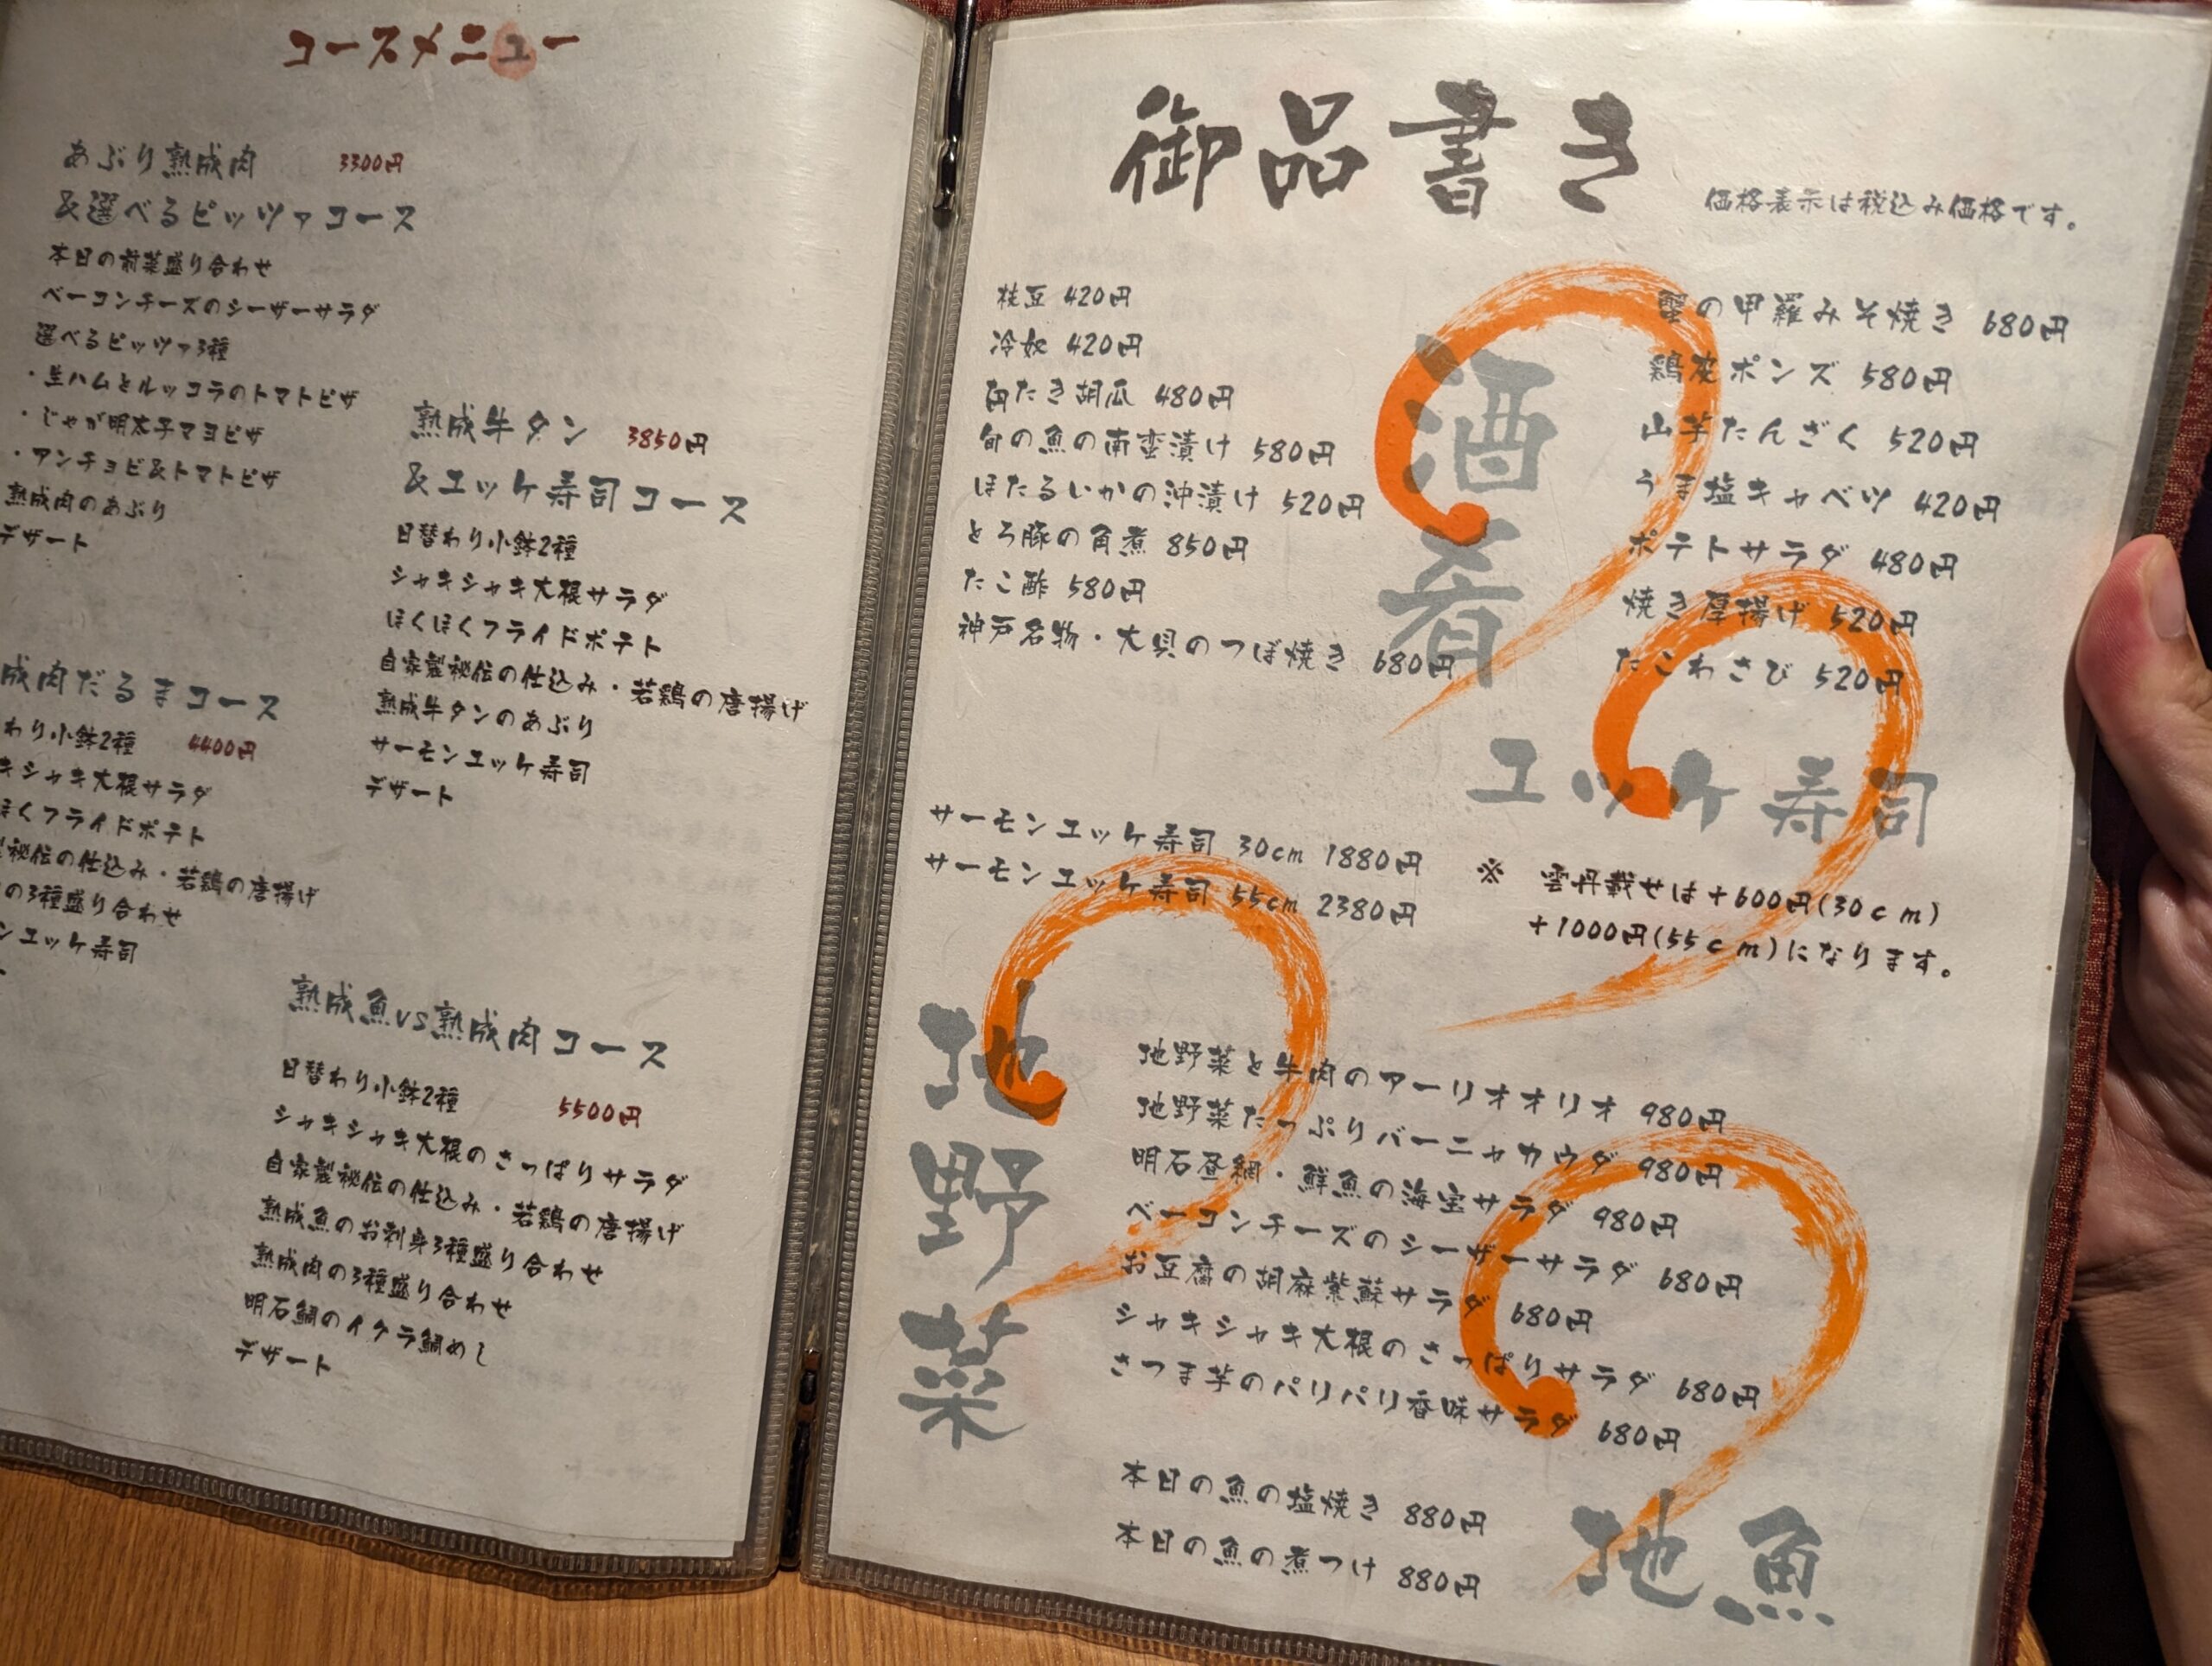 コースメニュー
あぶり熟成肉 3300円
&選べるピッツァコース
本日の前菜盛り合わせ
ベーコンチーズのシーザーサラダ
選べるピッツァ3種
・生ハムとルッコラのトマトピザ
・じゃが明太子マヨピザ
・アンチョビ&トマトピザ
熟成肉のあぶり
デザート
熟成牛タン 3850円
&ユッケ寿司コース
日替わり小鉢2種
シャキシャキ大根サラダ
ほくほくフライドポテト
自家製秘伝の仕込み・若鶏の唐揚げ
熟成牛タンのあぶり
サーモンユッケ寿司
デザート
成肉だるまコース
わり小鉢2種 4400円
キシャキ大根サラダ
ほくフライドポテト
秘伝の仕込み・若鶏の唐揚げ
の3種盛り合わせ
ンユッケ寿司
熟成魚vs熟成肉コース
日替わり小鉢2種 5500円
シャキシャキ大根のさっぱりサラダ
自家製秘伝の仕込み・若鶏の唐揚げ
熟成魚のお刺身3種盛り合わせ
熟成肉の3種盛り合わせ
明石鯛のイクラ鯛めし
デザート
御品書き
価格表示は税込み価格です。
酒肴
枝豆 420円
冷奴 420円
たたき胡瓜 480円
旬の魚の南蛮漬け 580円
ほたるいかの沖漬け 520円
とろ豚の角煮 850円
たこ酢 580円
神戸名物・大貝のつぼ焼き 680円
蟹の甲羅みそ焼き 680円
鶏皮ポンズ 580円
山芋たんざく 520円
うま塩キャベツ 420円
ポテトサラダ 480円
焼き厚揚げ 520円
たこわさび 520円
ユッケ寿司
サーモンユッケ寿司 30cm 1880円
サーモンユッケ寿司 55cm 2380円
※ 雲丹載せは+600円(30cm)
+1000円(55cm)になります。
地野菜
地野菜と牛肉のアーリオオリオ 980円
地野菜たっぷりバーニャカウダ 980円
明石昼網・鮮魚の海宝サラダ 980円
ベーコンチーズのシーザーサラダ 680円
お豆腐の胡麻紫蘇サラダ 680円
シャキシャキ大根のさっぱりサラダ 680円
さつま芋のパリパリ香味サラダ 680円
本日の魚の塩焼き 880円
本日の魚の煮つけ 880円
地魚